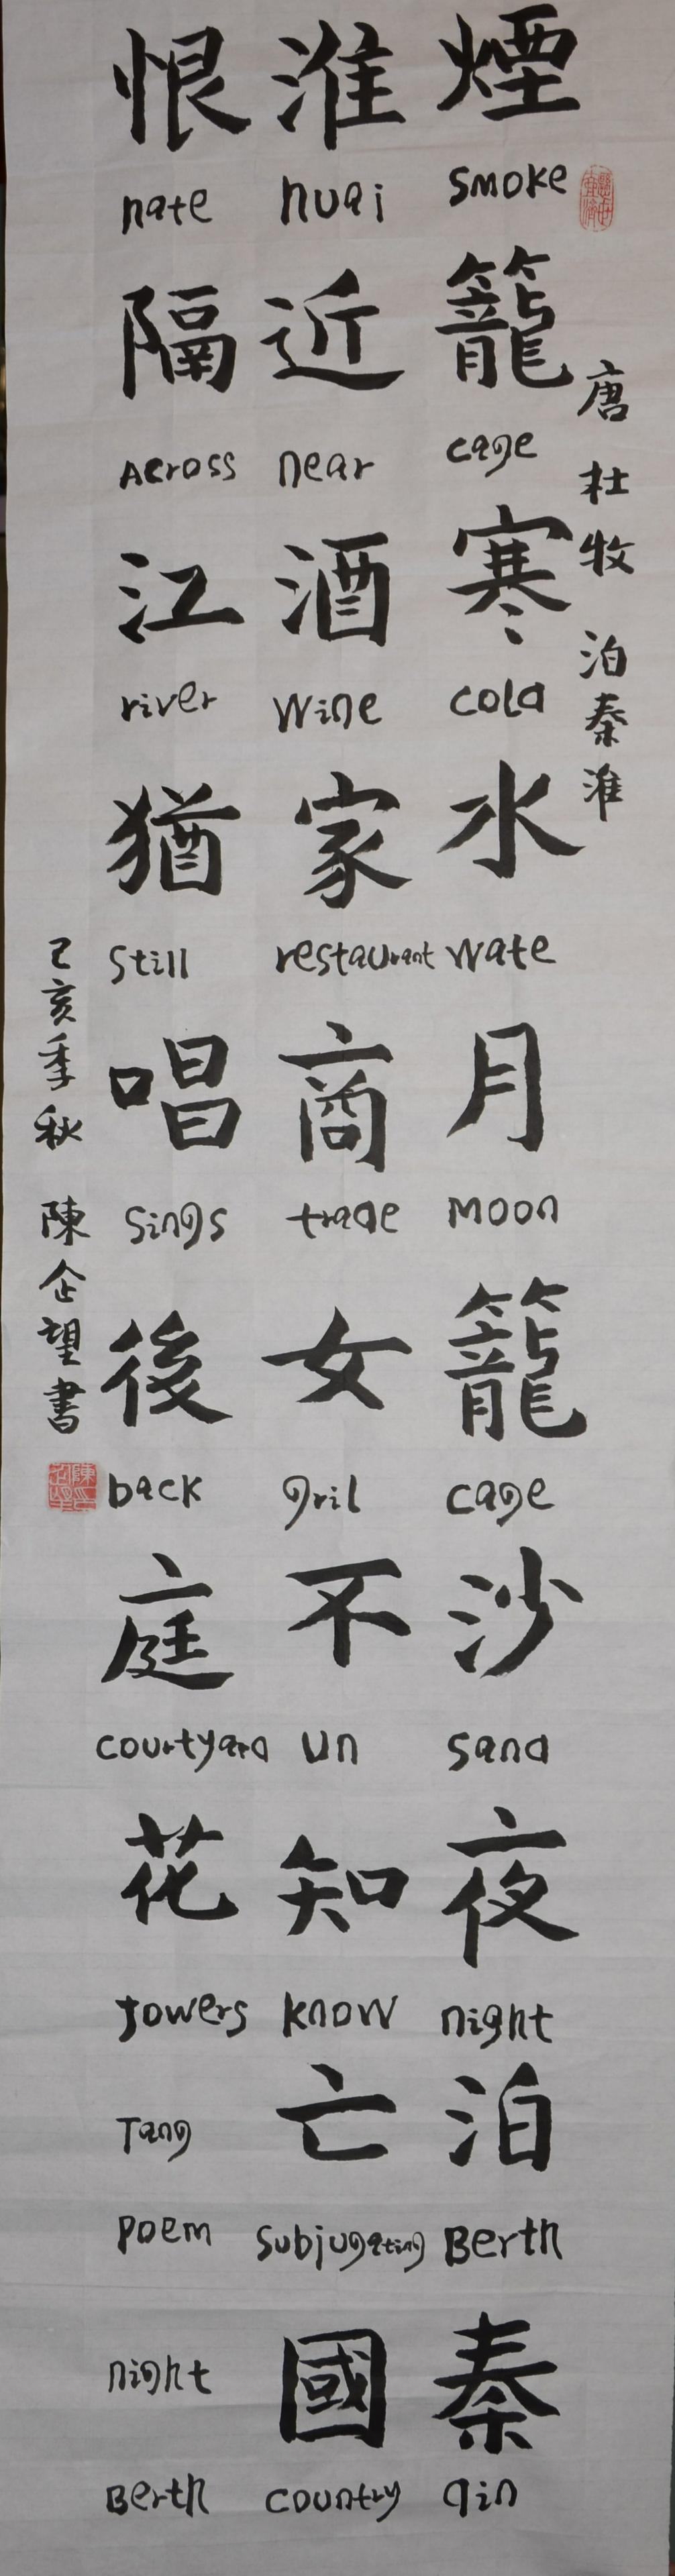 唐杜牧 泊秦淮
煙
smoke
籠
cage
寒
cold
水
wate
月
moon
籠
cage
沙
sand
夜
night
泊
Berth
秦
qin
淮
huai
近
near
酒
wine
家
restaurant
商
trade
女
gril
不
un
知
know
亡
subjugating
國
country
恨
hate
隔
Across
江
river
猶
still
唱
sings
後
back
庭
courtyard
花
fowers
Tang
poem
night
Berth
己亥季秋 陳企望書